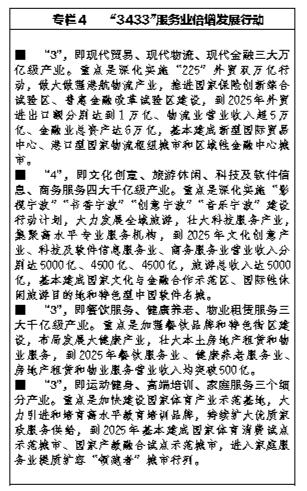 专栏4 “3433”服务业倍增发展行动
■ “3”，即现代贸易、现代物流、现代金融三大万
亿级产业。重点是深化实施“225”外贸双万亿行
动，做大做强港航物流产业，推进国家保险创新综合
试验区、普惠金融改革试验区建设，到2025年外贸
进出口额分别达到1万亿、物流业营业收入超5万
亿、金融业总资产达6万亿，基本建成新型国际贸易
中心、港口型国家物流枢纽城市和区域性金融中心城
市。
■ “4”，即文化创意、旅游休闲、科技及软件信
息、商务服务四大千亿级产业。重点是深化实施“影
视宁波”“书香宁波”“创意宁波”“音乐宁波”建设
行动计划，大力发展全域旅游，壮大科技服务产业，
集聚高水平专业服务机构，到2025年文化创意产
业、科技及软件信息服务业、商务服务业营业收入分
别达5000亿、4500亿、4500亿，旅游总收入达5000
亿，基本建成国家文化与金融合作示范区、国际性休
闲旅游目的地和特色型中国软件名城。
■ “3”，即餐饮服务、健康养老、物业租赁服务三
大千亿级产业。重点是加强餐饮品牌和特色街区建
设，布局发展大健康产业，壮大本土房地产租赁和物
业服务，到2025年餐饮服务业、健康养老服务业、
房地产租赁和物业服务营业收入均突破500亿。
■ “3”，即运动健身、高端培训、家庭服务三个细
分产业。重点是加快建设国家体育产业示范基地，大
力引进和培育高水平教育培训品牌，持续扩大优质家
政服务供给，到2025年基本建成国家体育消费试点
示范城市、国家产教融合试点示范城市，进入家庭服
务业提质扩容“领跑者”城市行列。